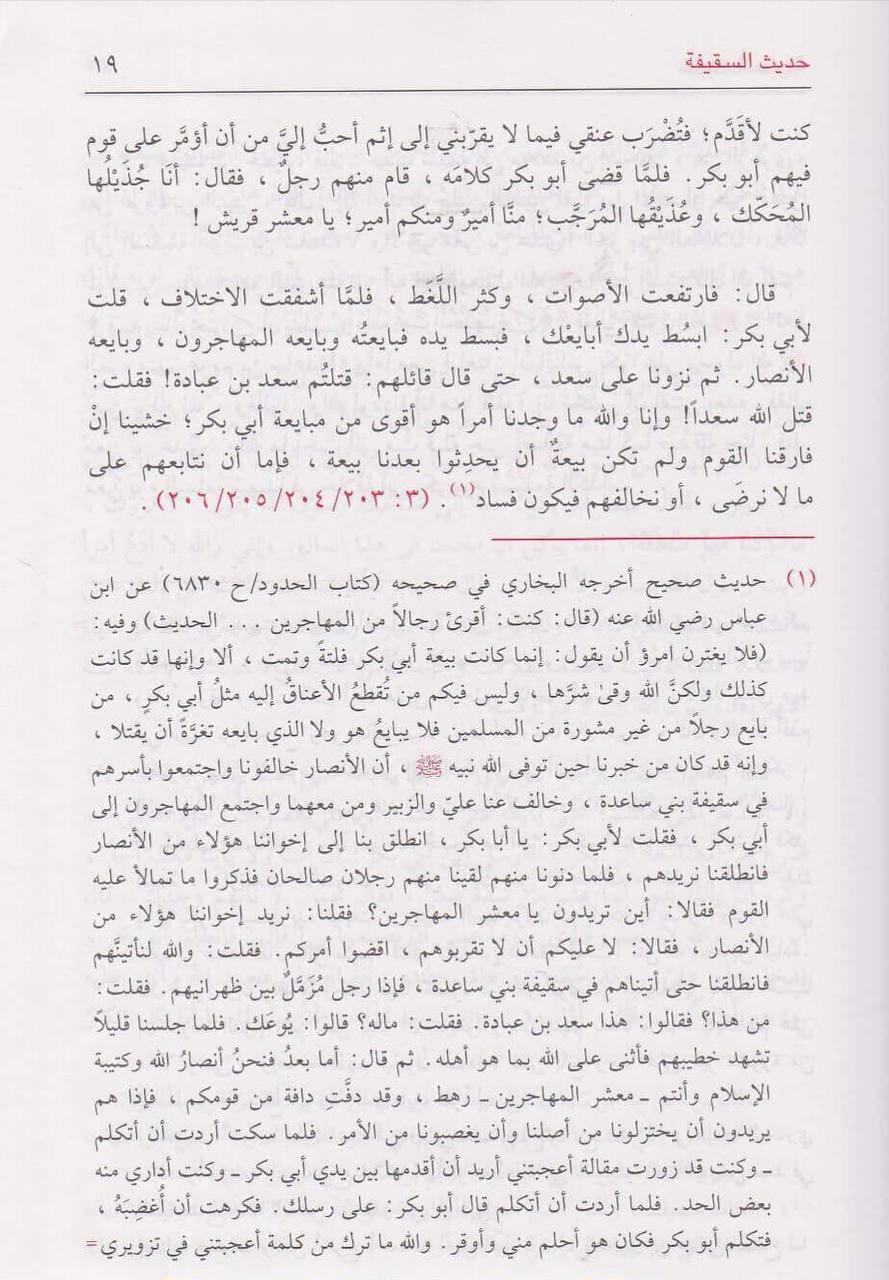 حديث السقيفة ١٩
كنت لأقَدَّم؛ فتُضْرَب عنقي فيما لا يقرّبني إلى إثم أحبُّ إليَّ من أن أؤمَّر على قوم
فيهم أبو بكر. فلمَّا قضى أبو بكر كلامَه ، قام منهم رجلٌ ، فقال: أنَا جُذَيْلُها
المُحَكّك ، وعُذَيْقُها المُرَجَّب؛ منَّا أميرٌ ومنكم أمير؛ يا معشر قريش !
قال: فارتفعت الأصوات ، وكثر اللَّغَط ، فلمَّا أشفقت الاختلاف ، قلت
لأبي بكر: ابسُط يدك أبايعْك ، فبسط يده فبايعتُه وبايعه المهاجرون ، وبايعه
الأنصار. ثم نزونا على سعد ، حتى قال قائلهم: قتلتُم سعد بن عبادة! فقلت:
قتل الله سعداً! وإنا والله ما وجدنا أمراً هو أقوى من مبايعة أبي بكر؛ خشينا إنْ
فارقنا القوم ولم تكن بيعةٌ أن يحدِثوا بعدنا بيعة ، فإما أن نتابعهم على
ما لا نرضَى ، أو نخالفهم فيكون فساد(١). (٣: ٢٠٣/ ٢٠٤/ ٢٠٥/ ٢٠٦) .
(١) حديث صحيح أخرجه البخاري في صحيحه (كتاب الحدود/ح ٦٨٣٠) عن ابن
عباس رضي الله عنه (قال: كنت: أقرئ رجالاً من المهاجرين . . . الحديث) وفيه:
(فلا يغترن امرؤ أن يقول: إنما كانت بيعة أبي بكر فلتةً وتمت ، ألا وإنها قد كانت
كذلك ولكنَّ الله وقىٰ شرَّها ، وليس فيكم من تُقطعُ الأعناقُ إليه مثلُ أبي بكرٍ ، من
بايع رجلاً من غير مشورة من المسلمين فلا يبايعُ هو ولا الذي بايعه تغرَّةً أن يقتلا ،
وإنه قد كان من خبرنا حين توفى الله نبيه ﷺ ، أن الأنصار خالفونا واجتمعوا بأسرهم
في سقيفة بني ساعدة ، وخالف عنا عليّ والزبير ومن معهما واجتمع المهاجرون إلى
أبي بكر ، فقلت لأبي بكر: يا أبا بكر ، انطلق بنا إلى إخواننا هؤلاء من الأنصار
فانطلقنا نريدهم ، فلما دنونا منهم لقينا منهم رجلان صالحان فذكروا ما تمالأ عليه
القوم فقالا: أين تريدون يا معشر المهاجرين؟ فقلنا: نريد إخواننا هؤلاء من
الأنصار ، فقالا: لا عليكم أن لا تقربوهم ، اقضوا أمركم. فقلت: والله لنأتينَّهم
فانطلقنا حتى أتيناهم في سقيفة بني ساعدة ، فإذا رجل مُزَمَّلٌ بين ظهرانيهم. فقلت:
من هذا؟ فقالوا: هذا سعد بن عبادة. فقلت: ماله؟ قالوا: يُوعَك. فلما جلسنا قليلاً
تشهد خطيبهم فأثنى على الله بما هو أهله. ثم قال: أما بعدُ فنحنُ أنصارُ الله وكتيبة
الإسلام وأنتم ـ معشر المهاجرين ـ رهط ، وقد دفَّتِ دافة من قومكم ، فإذا هم
يريدون أن يختزلونا من أصلنا وأن يغصبونا من الأمر. فلما سكت أردت أن أتكلم
ـ وكنت قد زورت مقالة أعجبتني أريد أن أقدمها بين يدي أبي بكر ـ وكنت أداري منه
بعض الحد. فلما أردت أن أتكلم قال أبو بكر: على رسلك. فكرهت أن أُغضِبَهُ ،
فتكلم أبو بكر فكان هو أحلم مني وأوقر. والله ما ترك من كلمة أعجبتني في تزويري=